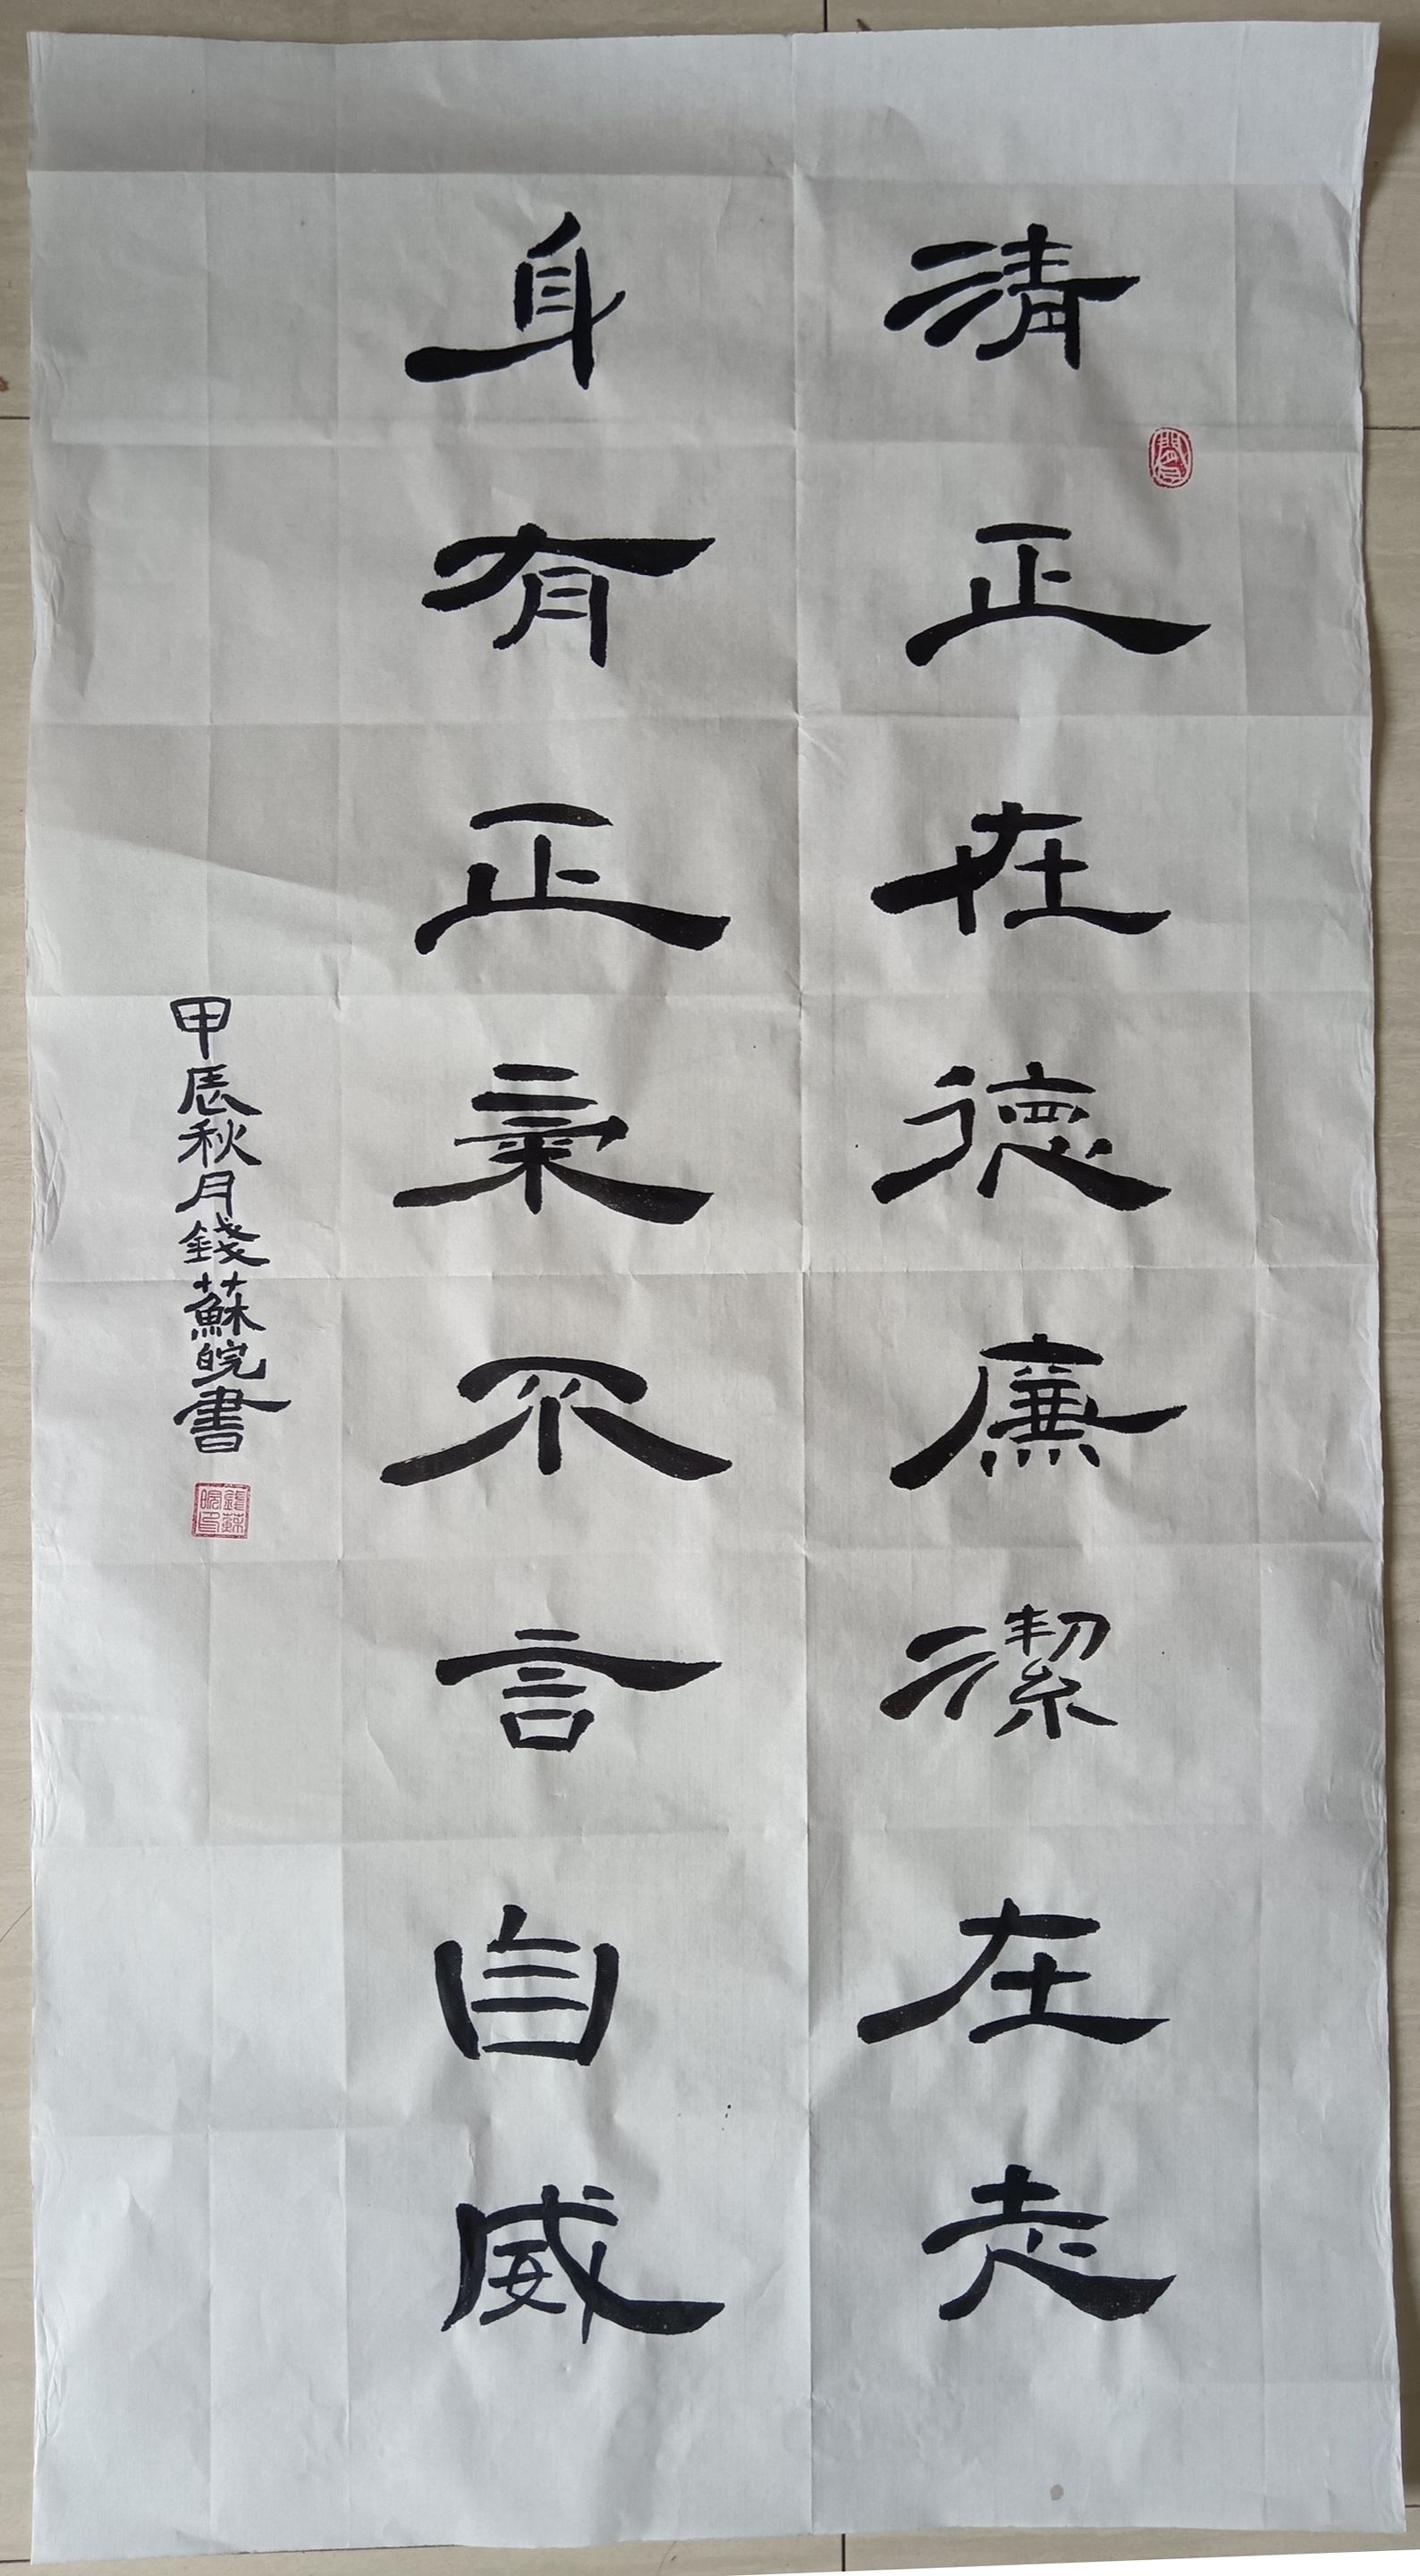 清正在德廉潔在志
身有正氣不言自威
甲辰秋月錢蘇皖書
錢蘇皖印